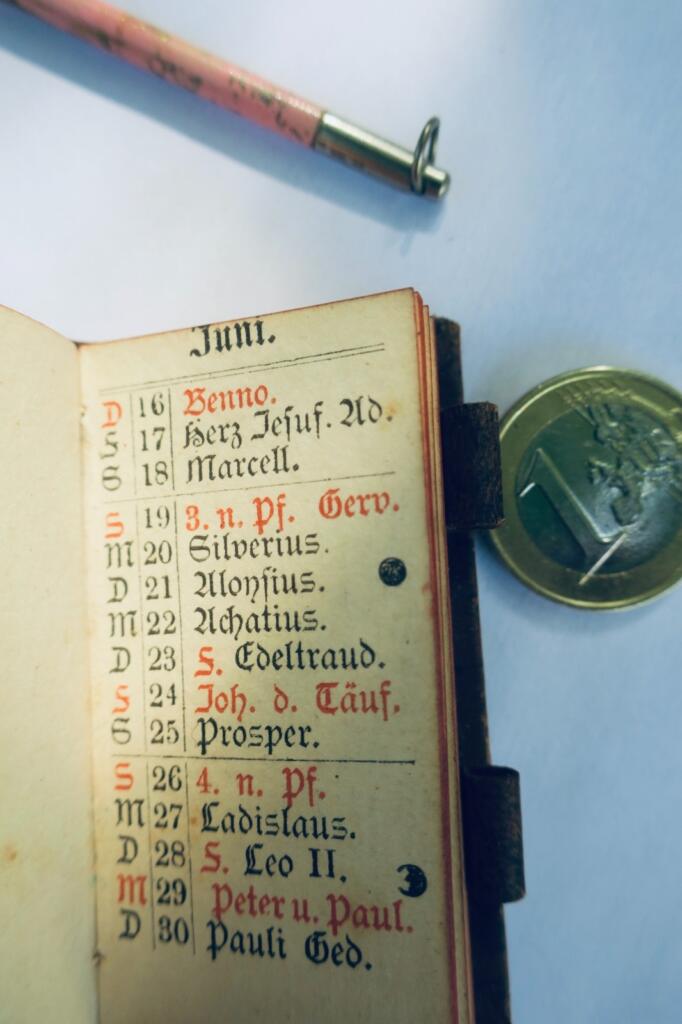 Juni.
D 16 Benno.
F 17 Herz Jesuf. Ad.
S 18 Marcell.
S 19 3. n. Pf. Gerv.
M 20 Silverius.
D 21 Aloysius.
M 22 Achatius.
D 23 F. Edeltraud.
F 24 Joh. d. Täuf.
S 25 Prosper.
S 26 4. n. Pf.
M 27 Ladislaus.
D 28 F. Leo II.
M 29 Peter u. Paul.
D 30 Pauli Ged.
1